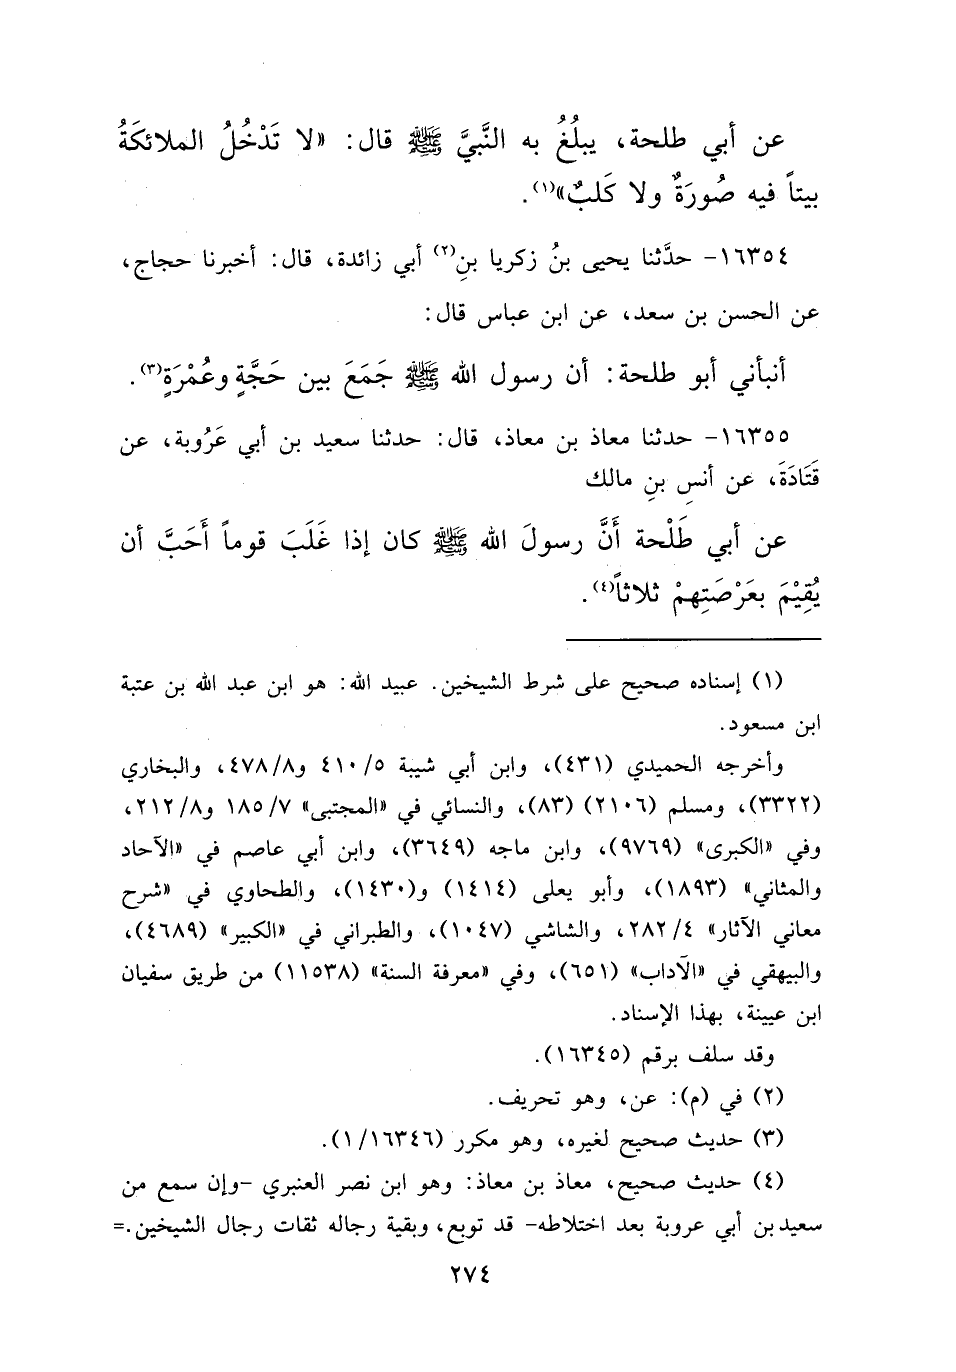 عن أبي طلحة، يبلُغُ به النَّبيَّ ﷺ قال: «لا تَدْخُلُ الملائكَةُ
بيتاً فيه صُورَةٌ ولا كَلبٌ»(١).
١٦٣٥٤- حدَّثنا يحيى بنُ زكريا بنِ(٢) أبي زائدة، قال: أخبرنا حجاج،
عن الحسن بن سعد، عن ابن عباس قال:
أنبأني أبو طلحة: أن رسول الله ﷺ جَمَعَ بين حَجَّةٍ وعُمْرَةٍ(٣).
١٦٣٥٥- حدثنا معاذ بن معاذ، قال: حدثنا سعيد بن أبي عَرُوبة، عن
قَتَادَةَ، عن أنسِ بنِ مالك
عن أبي طَلْحة أَنَّ رسولَ الله ﷺ كان إذا غَلَبَ قوماً أَحَبَّ أن
يُقِيْمَ بعَرْصَتِهمْ ثلاثاً(٤).
(١) إسناده صحيح على شرط الشيخين. عبيد الله: هو ابن عبد الله بن عتبة
ابن مسعود.
وأخرجه الحميدي (٤٣١)، وابن أبي شيبة ٤١٠/٥ و٤٧٨/٨، والبخاري
(٣٣٢٢)، ومسلم (٢١٠٦) (٨٣)، والنسائي في «المجتبى» ١٨٥/٧ و٢١٢/٨،
وفي «الكبرى» (٩٧٦٩)، وابن ماجه (٣٦٤٩)، وابن أبي عاصم في «الآحاد
والمثاني» (١٨٩٣)، وأبو يعلى (١٤١٤) و(١٤٣٠)، والطحاوي في «شرح
معاني الآثار» ٢٨٢/٤، والشاشي (١٠٤٧)، والطبراني في «الكبير» (٤٦٨٩)،
والبيهقي في «الآداب» (٦٥١)، وفي «معرفة السنة» (١١٥٣٨) من طريق سفيان
ابن عيينة، بهذا الإسناد.
وقد سلف برقم (١٦٣٤٥).
(٢) في (م): عن، وهو تحريف.
(٣) حديث صحيح لغيره، وهو مكرر (١/١٦٣٤٦).
(٤) حديث صحيح، معاذ بن معاذ: وهو ابن نصر العنبري -وإن سمع من
سعيد بن أبي عروبة بعد اختلاطه- قد توبع، وبقية رجاله ثقات رجال الشيخين.=
٢٧٤